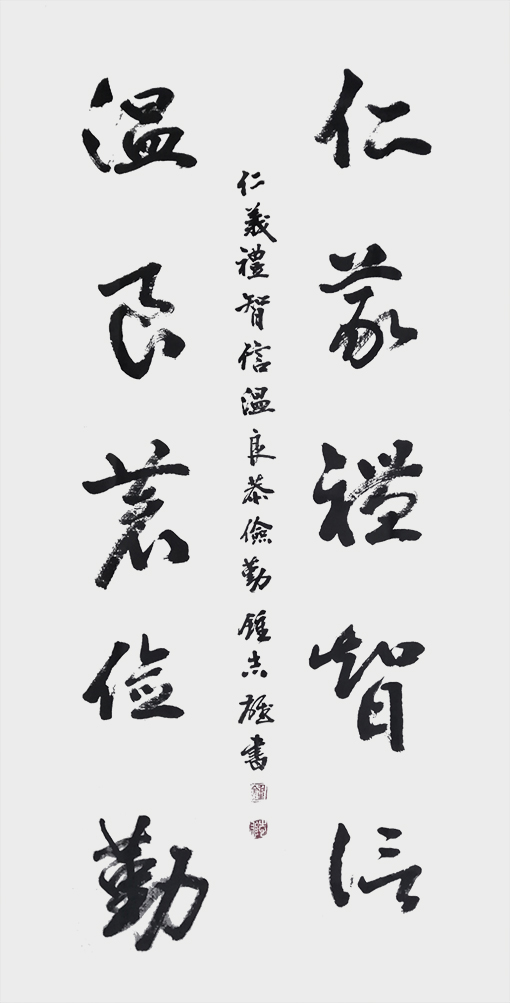 仁義禮智信
溫良恭儉勤
仁義禮智信溫良恭儉勤鍾志雄書